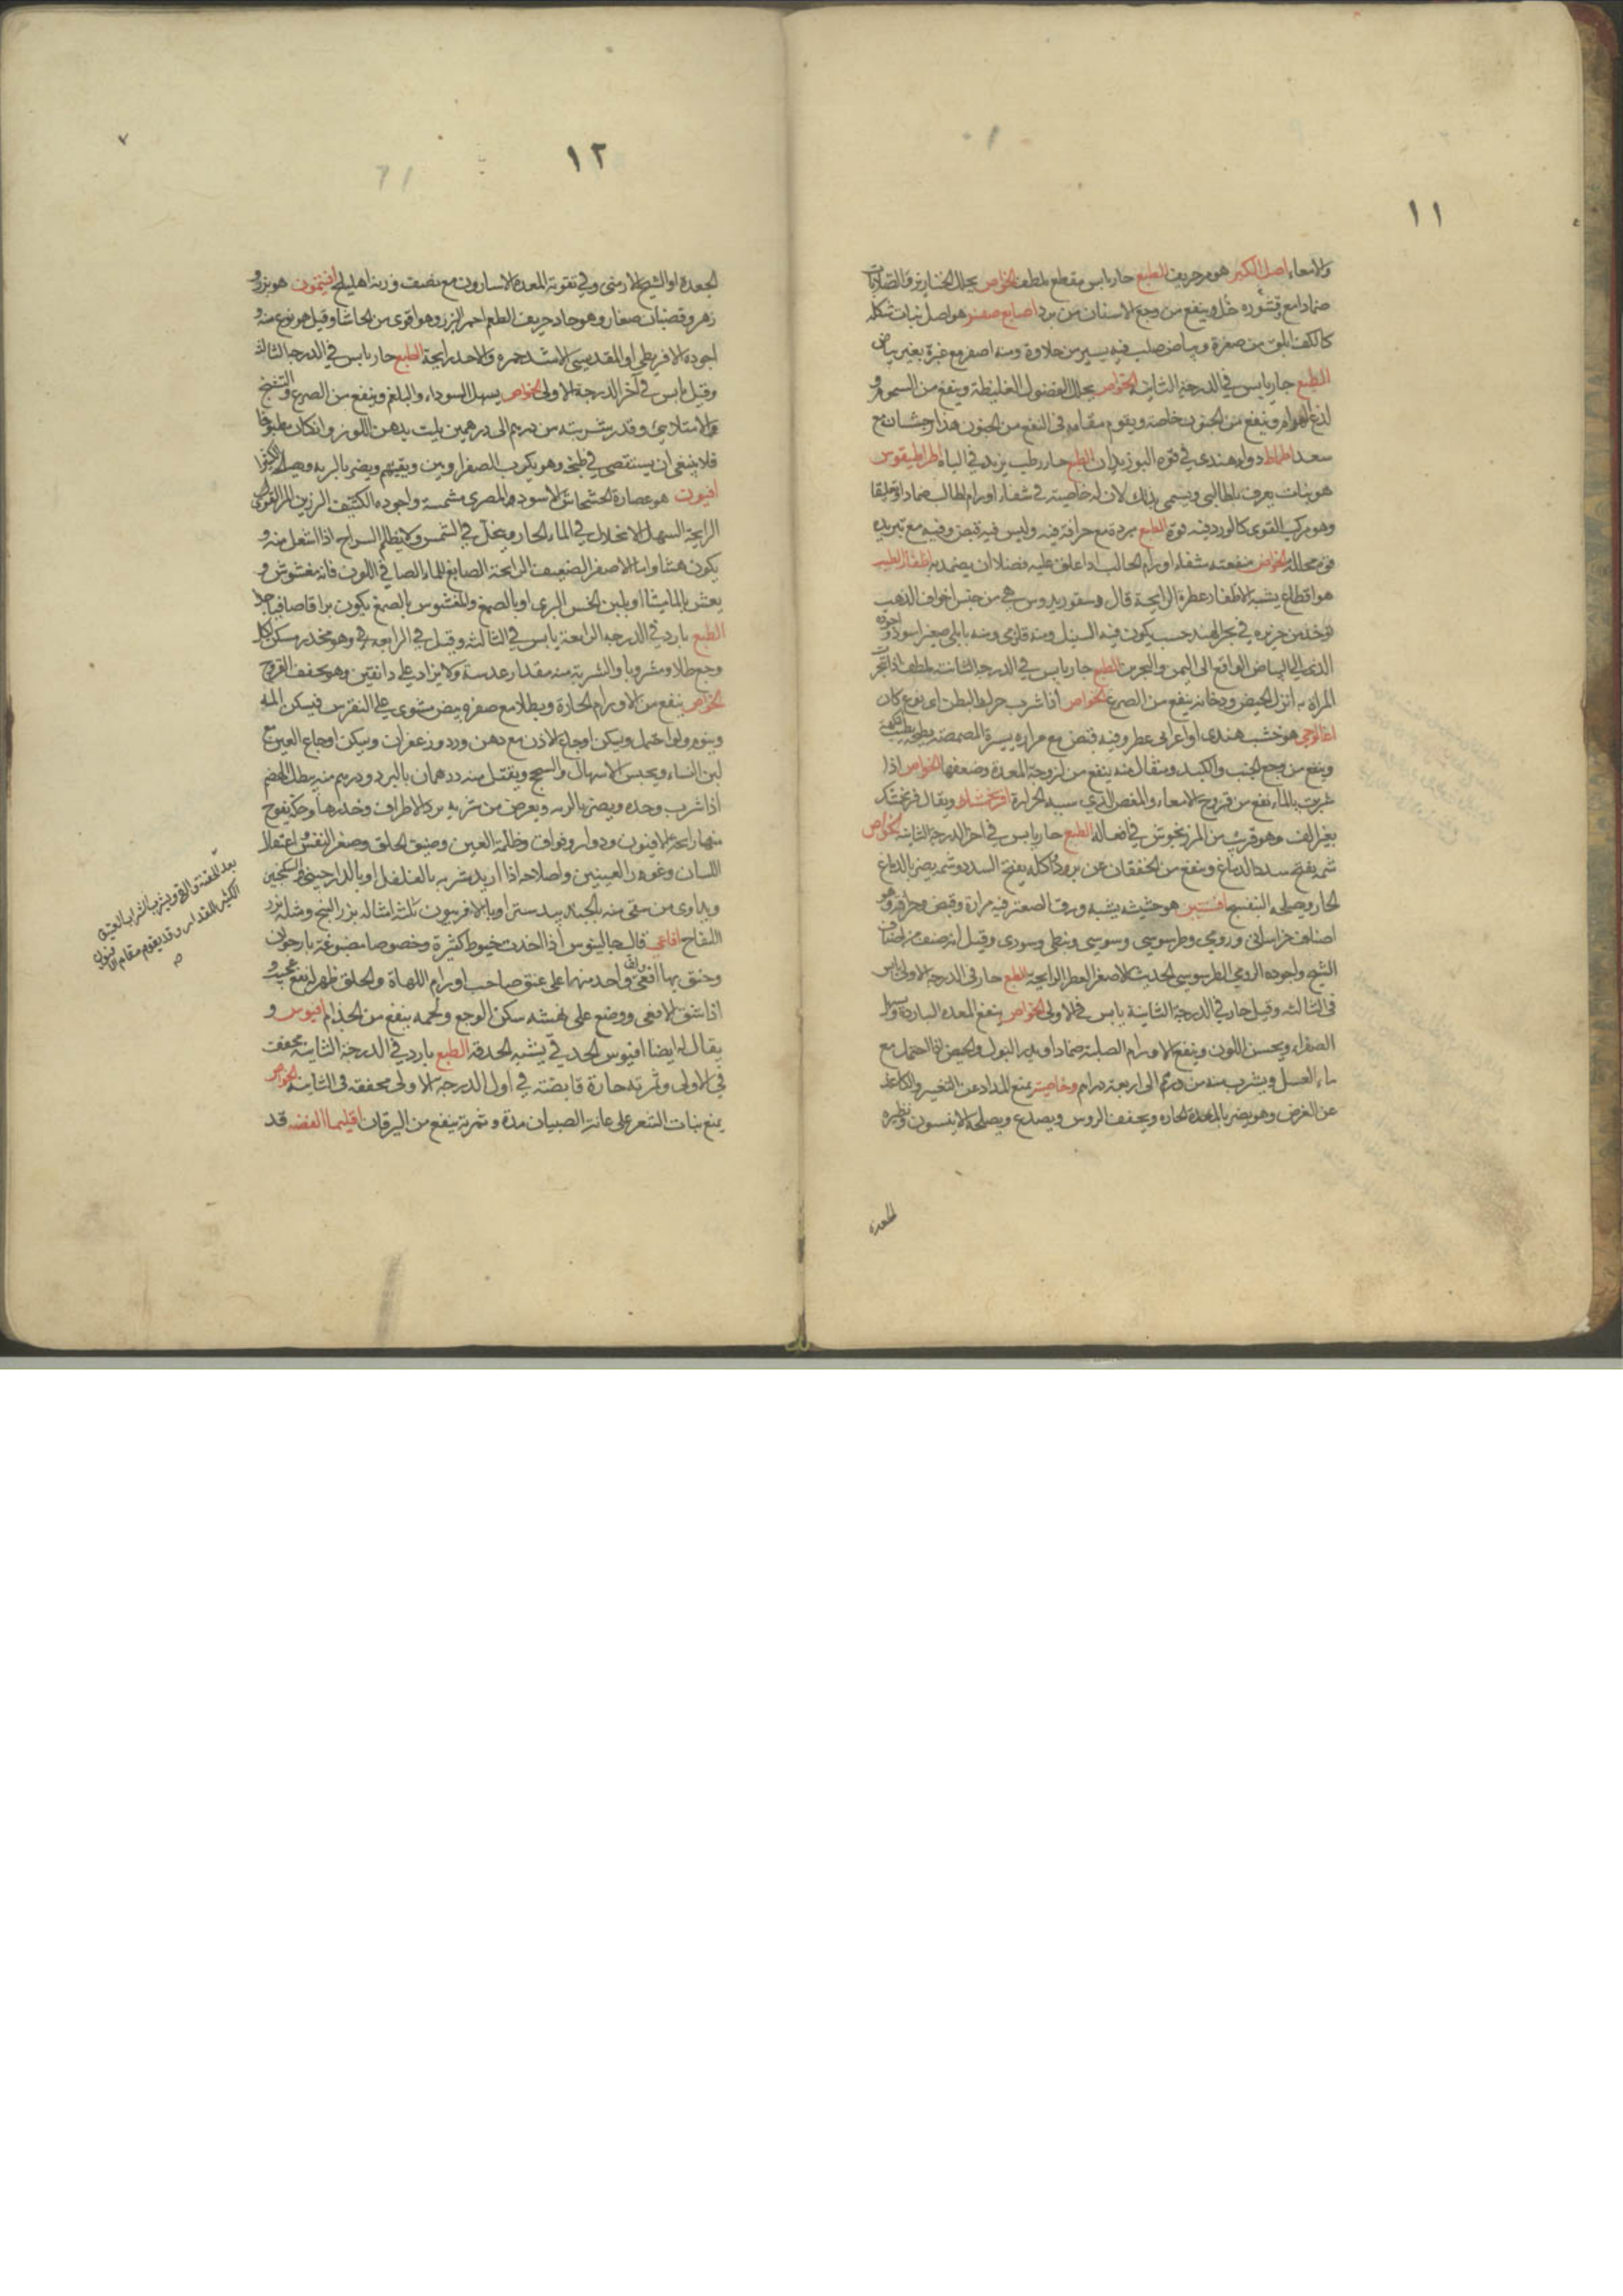 ١١
والامعاء اصل الكبر هو مر حريف الطبع حار يابس مقطع ملطف الخواص يحلل الخنازير والصلابات
ضمادا مع قشوره خل وينفع من وجع الاسنان من برد اصابع صفر هو اصل نبات شكله
كالكف ابلق من صفرة وبياض صلب فيه يسير من حلاوة ومنه اصفر مع غبرة بغير بياض
الطبع حار يابس في الدرجة الثانية الخواص يحلل الفضول الغليظة وينفع من السموم و
لذغ الهوام وينفع من الجنون خاصة ويقوم مقامه في النفع من الجنون هذارجشان مع
سعد اطماط دواء هندي في قوة البوزيدان الطبع حار رطب يزيد في الباه اطراطيقوس
هو نبات يعرف بالحالبي ويسمى بذلك لان له خاصية في شفاء اورام الحالب ضمادا وتعليقا
وهو مركب القوى كالورد فيه قوة الطبع مبردة مع حرافة فيه وليس فيه قبض وفيه مع تبريده
قوة محللة الخواص منفعته شفاء اورام الحالب اذا علق عليه فضلا ان يضمد به اظفار الطيب
هو اقطاع يشبه الاظفار عطرة الرايحة قال ديسقوريدوس هي من جنس اخراف الذهب
توخذ من جزيرة في بحر الهند حيث يكون فيه السنبل ومنه قلزمي ومنه بابلي صغير اسود واجوده
الذي الى البياض الواقع الى اليمن والبحرين الطبع حار يابس في الدرجة الثانية ملطف اذا تبخر
المراة به انزل الحيض ودخانه ينفع من الصرع الخواص اذا شرب حرك البطن اي نوع كان
اغالوجي هو خشب هندي او اعرابي عطر وفيه قبض مع مرارة يسيرة المضمضة بطبخه يطيب النكهة
وينفع من وجع الجنب والكبد ومثقال منه ينفع من لزوجة المعدة وضعفها الخواص اذا
شربت بالماء نفع من قروح الامعاء والمغص الذي سببه الحرارة افرنجمشك ويقال فرنجمشك
بغير الف وهو قريب من المرزنجوش في افعاله الطبع حار يابس في اخر الدرجة الثانية الخواص
شمه يفتح سدد الدماغ وينفع من الخفقان عن برودة اكله يفتح السدد وشمه يضر بالدماغ
الحار ويصلحه البنفسج افسنتين هو حشيشة يشبه ورق الصعتر فيه مرارة وقبض وحرافة وهو
اصناف خراساني ورومي وطرسوسي وسوسي ونبطي وسوري وقيل انه صنف من اصناف
الشيح واجوده الرومي الطرسوسي الحديث الاصفر العطر الرايحة الطبع حار في الدرجة الاولى يابس
في الثالثة وقيل حار في الدرجة الثانية يابس في الاولى الخواص ينفع المعدة الباردة ويسهل
الصفراء ويحسن اللون وينفع الاورام الصلبة ضمادا ويدر البول والحيض اذا احتمل مع
ماء العسل ويشرب منه من درهم الى اربعة دراهم وخاصيته يمنع المداد عن التغير والكاغد
عن القرض وهو يضر بالمعدة الحارة ويجفف الروس ويصدع ويصلحه الانيسون ونظيره
الجعدة
١٢
٧
الجعدة او الشيح الارمني وفي تقوية المعدة الاسارون مع نصف وزنه اهليلج افيثمون هو بزر و
زهر وقضبان صغار وهو حاد حريف الطعم احمر البزر وهو اقوى من الحاشا وقيل هو نوع منه و
اجوده الاقريطي او المقدسي الاشد حمرة والاحد رايحة الطبع حار يابس في الدرجة الثالثة
وقيل يابس في آخر الدرجة الاولى الخواص يسهل السوداء والبلغم وينفع من الصرع والتشنج
والامتلائي وقدر شربته من درهم الى درهمين يلت بدهن اللوز وان كان مطبوخا
فلا ينبغي ان يستقصى في طبخه وهو يكرب الصفراويين ويقيئهم ويضر بالرية ويصلحه الكثيرا
افيون هو عصارة الخشخاش الاسود المصري مشمسة واجوده الكثيف الرزين المر القوي
الرايحة السهل الانحلال في الماء الحار وينحل في الشمس ولا يظلم السراج اذا اشعل منه و
يكون هشا واما الاصفر الضعيف الرايحة الصابغ للماء الصافي اللون فانه مغشوش و
يغش بالماميثا او بلبن الخس البري او بالصمغ والمغشوش بالصمغ يكون براقا صافيا جدا
الطبع بارد في الدرجة الرابعة يابس في الثالثة وقيل في الرابعة وهو مخدر مسكن لكل
وجع طلا ومشروبا والشربة منه مقدار عدسة ولا يزاد على دانقين وهو يجفف القروح
الخواص ينفع من الاورام الحارة ويطلا مع صفرة بيض مشوي على النقرس فيسكن المه
وينوم ولو احتمل ويسكن اوجاع الاذن مع دهن ورد وزعفران ويسكن اوجاع العين مع
لبن النساء ويحبس الاسهال والسحج ويقتل منه درهمان بالبرد ودرهم منه يبطل الهضم
اذا شرب وحده ويضر بالرية ويعرض من شربه برد الاطراف وخدرها وحكة يفوح
منها رايحة الافيون ودوار وفواق وظلمة العين وضيق الحلق وصغر النفس واعتقال
اللسان وغور العينين واصلاحه اذا اريد شربه بالفلفل او بالدارصيني والسكنجبين
ويداوى من سقي منه بالجند بيدستر او بالافربيون ثلثة امثاله بزر البنج ومثله بزر
اللفاح افاعي قال جالينوس اذا اخذت خيوط كثيرة وخصوصا مصبوغة بارجوان
وخنق بها افعى ولف واحد منها على عنق صاحب اورام اللهاة والحلق ظهر له نفع عجيب و
اذا شق الافعى ووضع على نهشه سكن الوجع ولحمه ينفع من الجذام افيوس و
يقال له ايضا افيوس الحدقي يشبه الحدقة الطبع بارد في الدرجة الثانية مجفف
في الاولى وثمرته حارة قابضة في اول الدرجة الاولى مجففة في الثانية الخواص
يمنع نبات الشعر على عانة الصبيان مدة وثمرته ينفع من اليرقان اقليميا الفضة قد
بعد الحقنة والقي ويشرب الشراب العتيق
الكثير المقدار وقد يقوم مقام الافيون